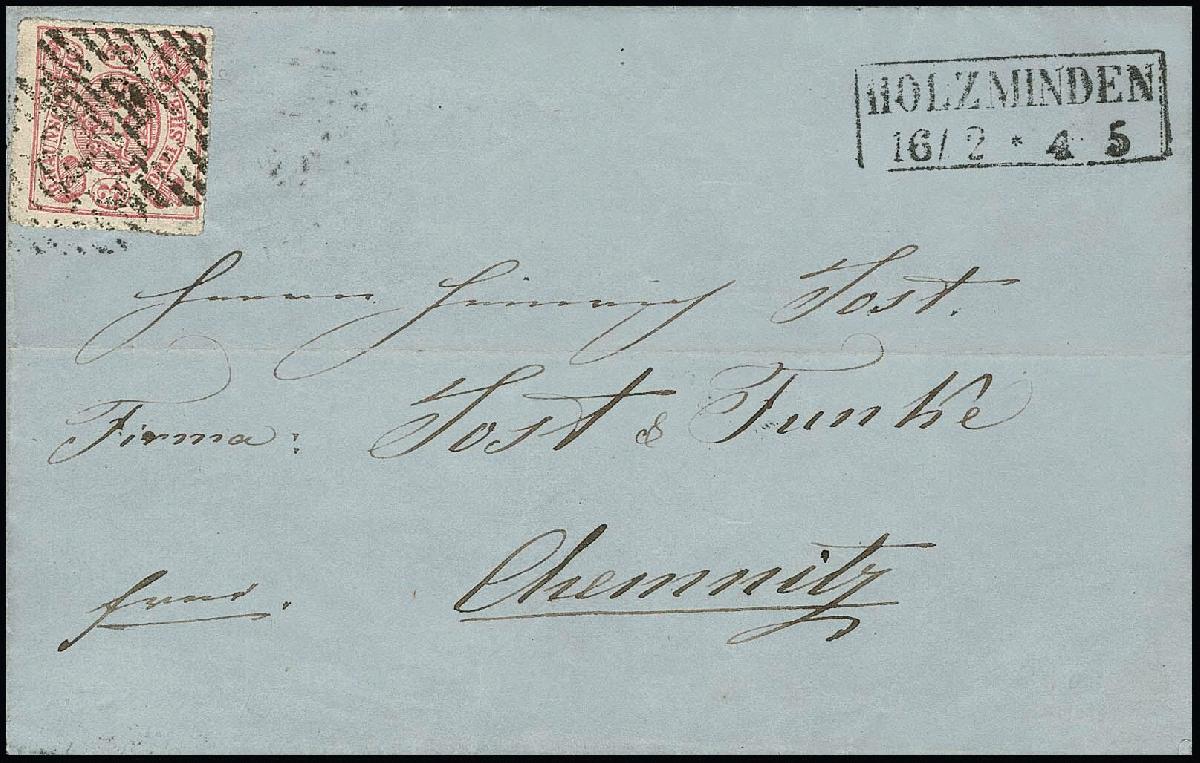 HOLZMINDEN
16/ 2 * 4-5
Herrn Heinrich Jost.
Firma: Jost & Funke
Chemnitz
frei.